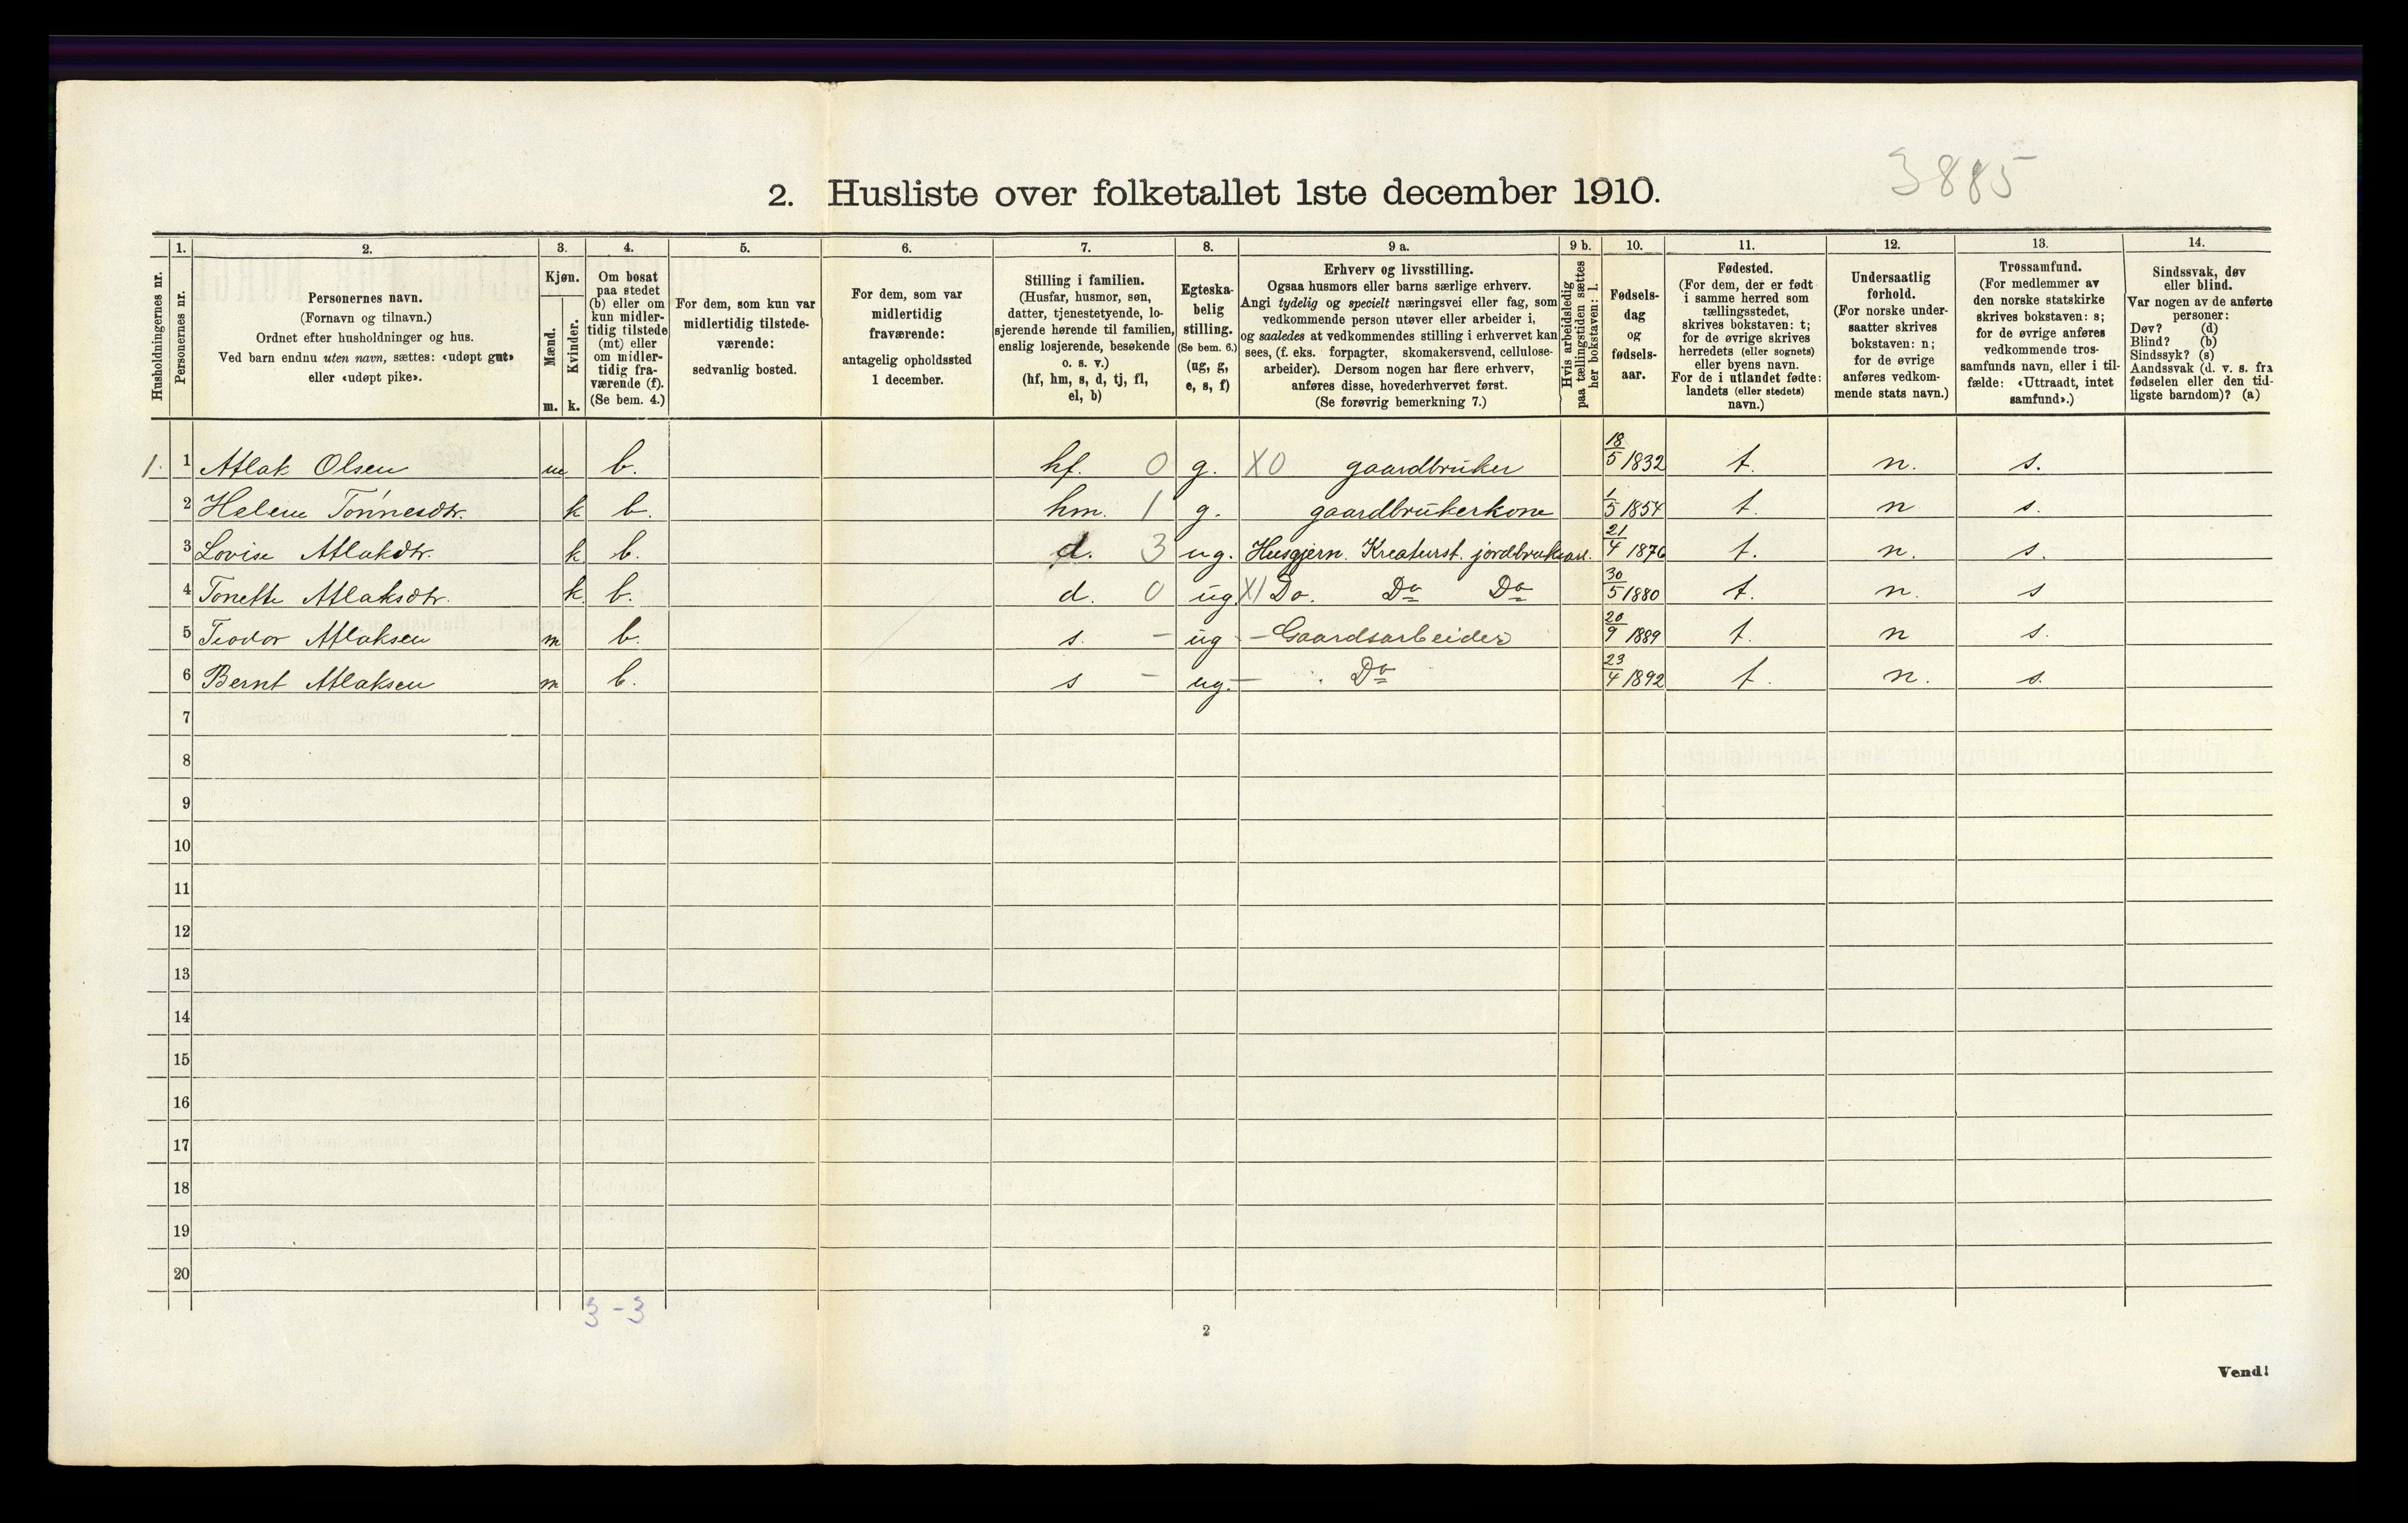 3885
2. Husliste over folketallet 1ste december 1910.
Husholdningernes nr.
1. Personernes nr.
2. Personernes navn. (Fornavn og tilnavn.) Ordnet efter husholdninger og hus. Ved barn endnu uten navn, sættes: «udøpt gut» eller «udøpt pike».
3. Kjøn. Mænd. m. Kvinder. k.
4. Om bosat paa stedet (b) eller om kun midlertidig tilstede (mt) eller om midlertidig fraværende (f). (Se bem. 4.)
5. For dem, som kun var midlertidig tilstedeværende: sedvanlig bosted.
6. For dem, som var midlertidig fraværende: antagelig opholdssted 1 december.
7. Stilling i familien. (Husfar, husmor, søn, datter, tjenestetyende, losjerende hørende til familien, enslig losjerende, besøkende o. s. v.) (hf, hm, s, d, tj, fl, el, b)
8. Egteskabelig stilling. (Se bem. 6.) (ug, g, e, s, f)
9 a. Erhverv og livsstilling. Ogsaa husmors eller barns særlige erhverv. Angi tydelig og specielt næringsvei eller fag, som vedkommende person utøver eller arbeider i, og saaledes at vedkommendes stilling i erhvervet kan sees, (f. eks. forpagter, skomakersvend, cellulosearbeider). Dersom nogen har flere erhverv, anføres disse, hovederhvervet først. (Se forøvrig bemerkning 7.)
9 b. Hvis arbeidsledig paa tællingstiden sættes her bokstaven: l.
10. Fødselsdag og fødselsaar.
11. Fødested. (For dem, der er født i samme herred som tællingsstedet, skrives bokstaven: t; for de øvrige skrives herredets (eller sognets) eller byens navn. For de i utlandet fødte: landets (eller stedets) navn.)
12. Undersaatlig forhold. (For norske undersaatter skrives bokstaven: n; for de øvrige anføres vedkommende stats navn.)
13. Trossamfund. (For medlemmer av den norske statskirke skrives bokstaven: s; for de øvrige anføres vedkommende trossamfunds navn, eller i tilfælde: «Uttraadt, intet samfund».)
14. Sindssvak, døv eller blind. Var nogen av de anførte personer: Døv? (d) Blind? (b) Sindssyk? (s) Aandssvak (d. v. s. fra fødselen eller den tidligste barndom)? (a)
1. 1 Atlak Olsen m b. hf. 0 g. X0 gaardbruker 18/5 1832 t. n. s.
2 Helene Tønnesdtr. k b. hm. 1 g. gaardbrukerkone 1/5 1854 t. n s.
3 Lovise Atlakdtr. k b. d. 3 ug. Husgjern. Kreaturst. jordbruksar. 21/4 1876 t. n. s.
4 Tonette Atlaksdtr. k. b. d. 0 ug. X1 Do. Do Do 30/5 1880 t. n. s
5 Teodor Atlaksen m b. s. - ug - Gaardsarbeider 20/9 1889 t. n s.
6 Bernt Atlaksen m b. s - ug. - Do 23/4 1892 t. n. s.
7
8
9
10
11
12
13
14
15
16
17
18
19
20
3 - 3
2
Vend!